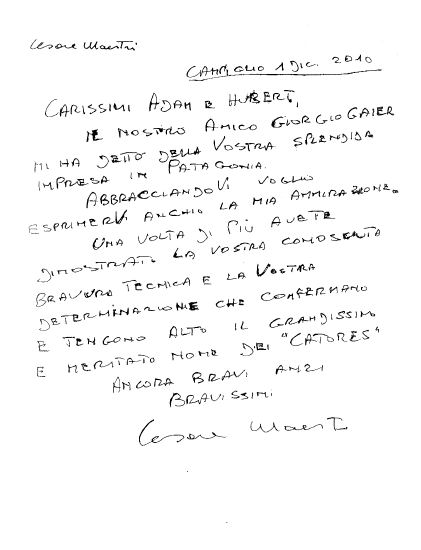 Cesare Maestri
CAMPIGLIO 1 DIC. 2010
CARISSIMI ADAM E HUBERT,
IL NOSTRO AMICO GIORGIO GAIER
MI HA DETTO DELLA VOSTRA SPLENDIDA
IMPRESA IN PATAGONIA.
ABBRACCIANDOVI VOGLIO
ESPRIMERVI ANCHIO LA MIA AMMIRAZIONE.
UNA VOLTA DI PIÙ AVETE
DIMOSTRATO LA VOSTRA CONOSCIUTA
BRAVURA TECNICA E LA VOSTRA
DETERMINAZIONE CHE CONFERMANO
E TENGONO ALTO IL GRANDISSIMO
E MERITATO NOME DEI "CATORES"
ANCORA BRAVI ANZI
BRAVISSIMI
Cesare Maestri